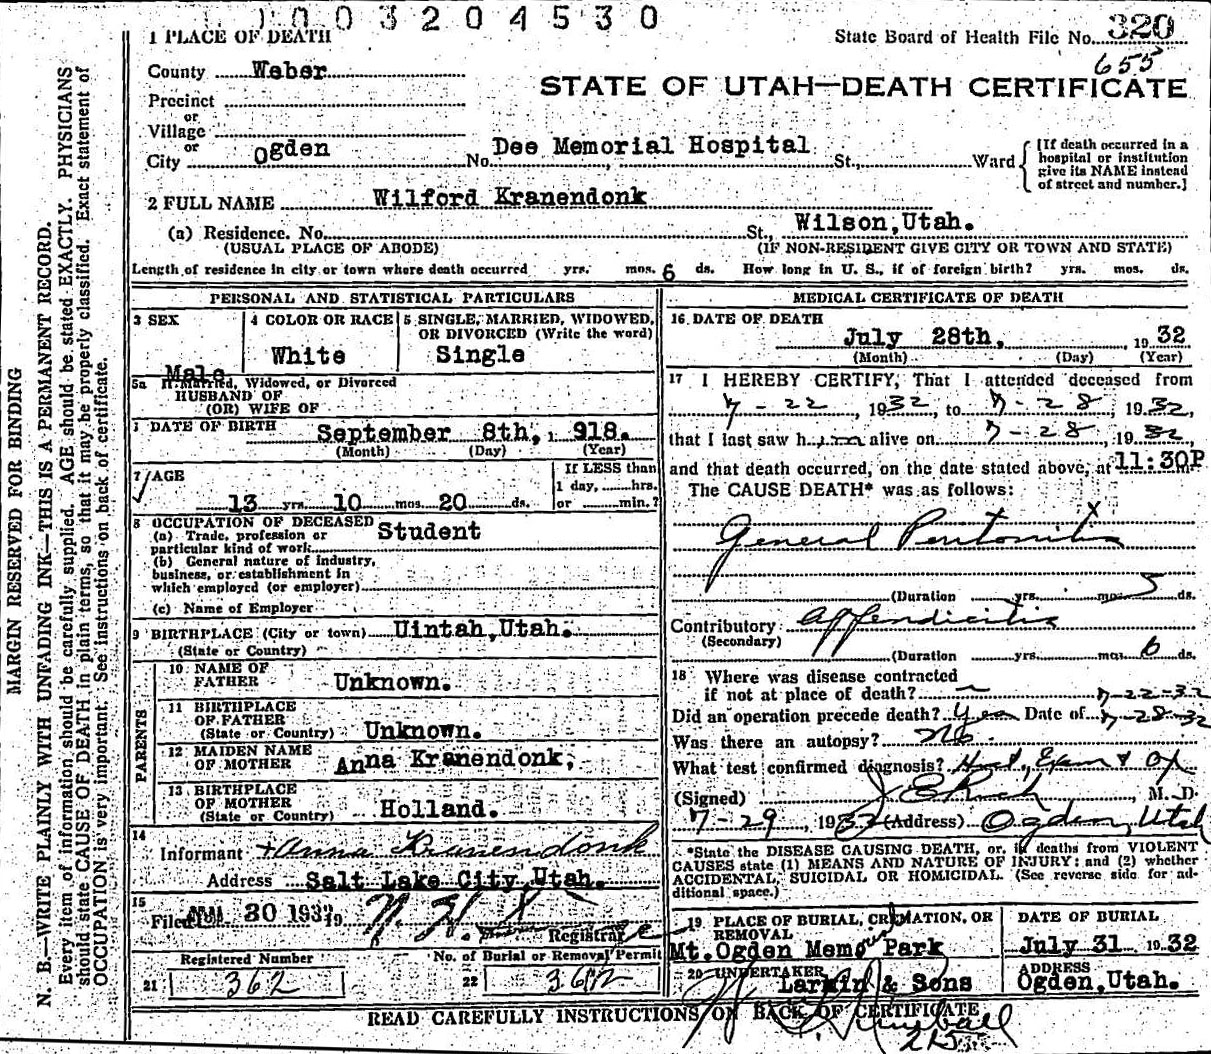 1003204530
1 PLACE OF DEATH
State Board of Health File No. 320
655
County Weber
STATE OF UTAH—DEATH CERTIFICATE
Precinct
or
Village
or
City Ogden No. Dee Memorial Hospital St., Ward
[If death occurred in a
hospital or institution
give its NAME instead
of street and number.]
2 FULL NAME Wilford Kranendonk
(a) Residence. No. St., Wilson, Utah.
(USUAL PLACE OF ABODE) (IF NON-RESIDENT GIVE CITY OR TOWN AND STATE)
Length of residence in city or town where death occurred yrs. mos. 6 ds. How long in U. S., if of foreign birth? yrs. mos. ds.
PERSONAL AND STATISTICAL PARTICULARS
3 SEX
Male
4 COLOR OR RACE
White
5 SINGLE, MARRIED, WIDOWED,
OR DIVORCED (Write the word)
Single
5a If Married, Widowed, or Divorced
HUSBAND OF
(OR) WIFE OF
DATE OF BIRTH September 8th, 1918.
(Month) (Day) (Year)
7 AGE
13 yrs. 10 mos. 20 ds.
If LESS than
1 day, hrs.
or min.?
8 OCCUPATION OF DECEASED Student
(a) Trade, profession or
particular kind of work
(b) General nature of industry,
business, or establishment in
which employed (or employer)
(c) Name of Employer
9 BIRTHPLACE (City or town) Uintah, Utah.
(State or Country)
PARENTS
10 NAME OF
FATHER Unknown.
11 BIRTHPLACE
OF FATHER
(State or Country) Unknown.
12 MAIDEN NAME
OF MOTHER Anna Kranendonk,
13 BIRTHPLACE
OF MOTHER
(State or Country) Holland.
14
Informant Anna Kranendonk
Address Salt Lake City, Utah.
15
Filed 30 193 19 Registrar
Registered Number
21 362
No. of Burial or Removal Permit
22 362
MEDICAL CERTIFICATE OF DEATH
16 DATE OF DEATH
July 28th, 1932
(Month) (Day) (Year)
17 I HEREBY CERTIFY, That I attended deceased from
7-22, 1932, to 7-28, 1932,
that I last saw him alive on 7-28, 1932,
and that death occurred, on the date stated above, at 11:30P m.
The CAUSE DEATH* was as follows:
General Peritonitis
(Duration yrs. mos. 5 ds.
Contributory Appendicitis
(Secondary)
(Duration yrs. mos. 6 ds.
18 Where was disease contracted
if not at place of death? 7-22-32
Did an operation precede death? Yes Date of 7-28-32
Was there an autopsy? No
What test confirmed diagnosis? Hist., Exam & Op
(Signed) , M. D
7-29, 1932 (Address) Ogden, Utah
*State the DISEASE CAUSING DEATH, or, if deaths from VIOLENT
CAUSES state (1) MEANS AND NATURE OF INJURY: and (2) whether
ACCIDENTAL, SUICIDAL OR HOMICIDAL. (See reverse side for ad-
ditional space.)
19 PLACE OF BURIAL, CREMATION, OR
REMOVAL
Mt. Ogden Park
DATE OF BURIAL
July 31 1932
20 UNDERTAKER
Larkin & Sons
ADDRESS
Ogden, Utah.
READ CAREFULLY INSTRUCTIONS ON BACK OF CERTIFICATE
Kimball
215
MARGIN RESERVED FOR BINDING
N. B.—WRITE PLAINLY WITH UNFADING INK—THIS IS A PERMANENT RECORD.
Every item of information should be carefully supplied. AGE should be stated EXACTLY. PHYSICIANS
should state CAUSE OF DEATH in plain terms, so that it may be properly classified. Exact statement of
OCCUPATION is very important. See instructions on back of certificate.